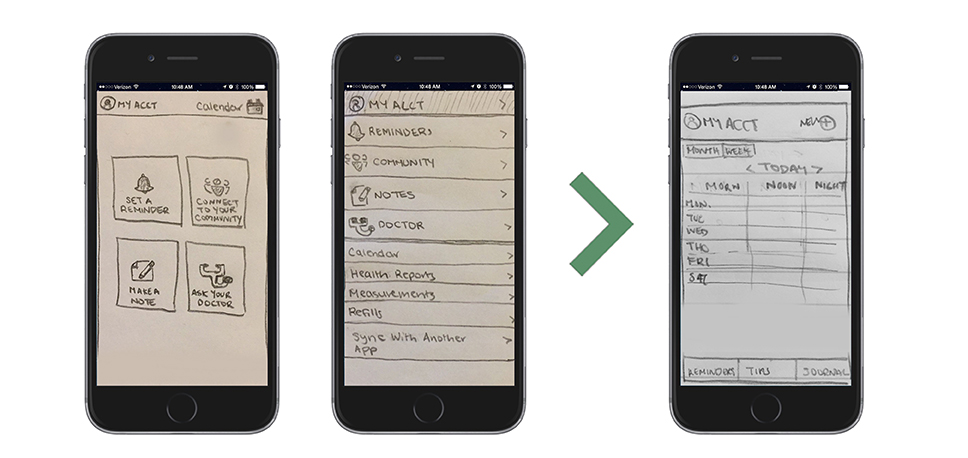 Verizon 10:48 AM 100%
MY ACCT Calendar
SET A
REMINDER
CONNECT
TO YOUR
COMMUNITY
MAKE A
NOTE
ASK YOUR
DOCTOR
Verizon 10:48 AM 100%
MY ACCT >
REMINDERS >
COMMUNITY >
NOTES >
DOCTOR >
Calendar >
Health Reports >
Measurements >
Refills >
Sync With Another >
App
Verizon 10:48 AM 100%
MY ACCT NEW +
MONTH WEEK
< TODAY >
MORN NOON NIGHT
MON.
TUE
WED
THO
FRI
SAT
REMINDERS TIPS JOURNAL